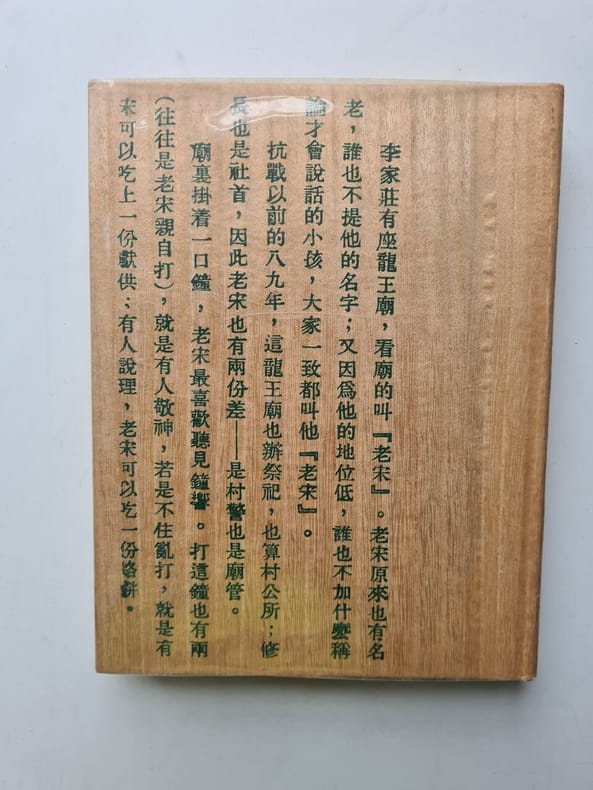 李家莊有座龍王廟，看廟的叫『老宋』。老宋原來也有名
老，誰也不提他的名字；又因爲他的地位低，誰也不加什麽稱
論才會說話的小孩，大家一致都叫他『老宋』。
抗戰以前的八九年，這龍王廟也辦祭祀，也算村公所；修
長也是社首，因此老宋也有兩份差——是村警也是廟管。
廟裏掛着一口鐘，老宋最喜歡聽見鐘響。打這鐘也有兩
（往往是老宋親自打），就是有人敬神，若是不住亂打，就是有
宋可以吃上一份獻供；有人說理，老宋可以吃一份烙餅。